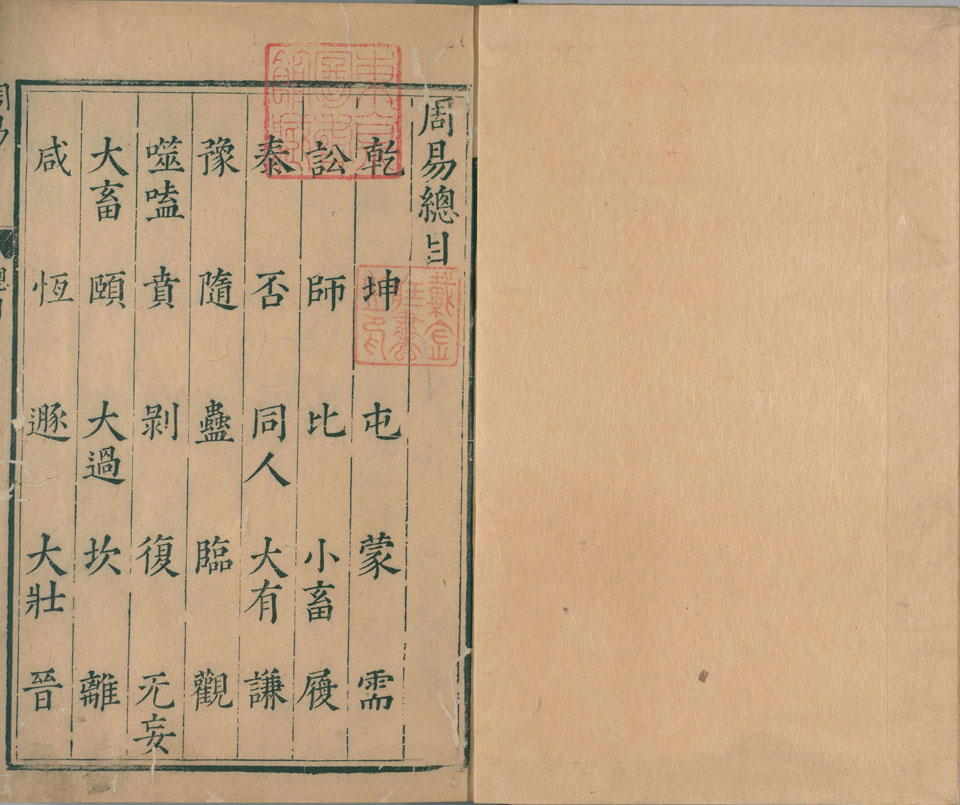 周易總目
乾 坤 屯 蒙 需
訟 師 比 小畜 履
泰 否 同人 大有 謙
豫 隨 蠱 臨 觀
噬嗑 賁 剥 復 无妄
大畜 頤 大過 坎 離
咸 恆 遯 大壯 晉
東京圖書館藏